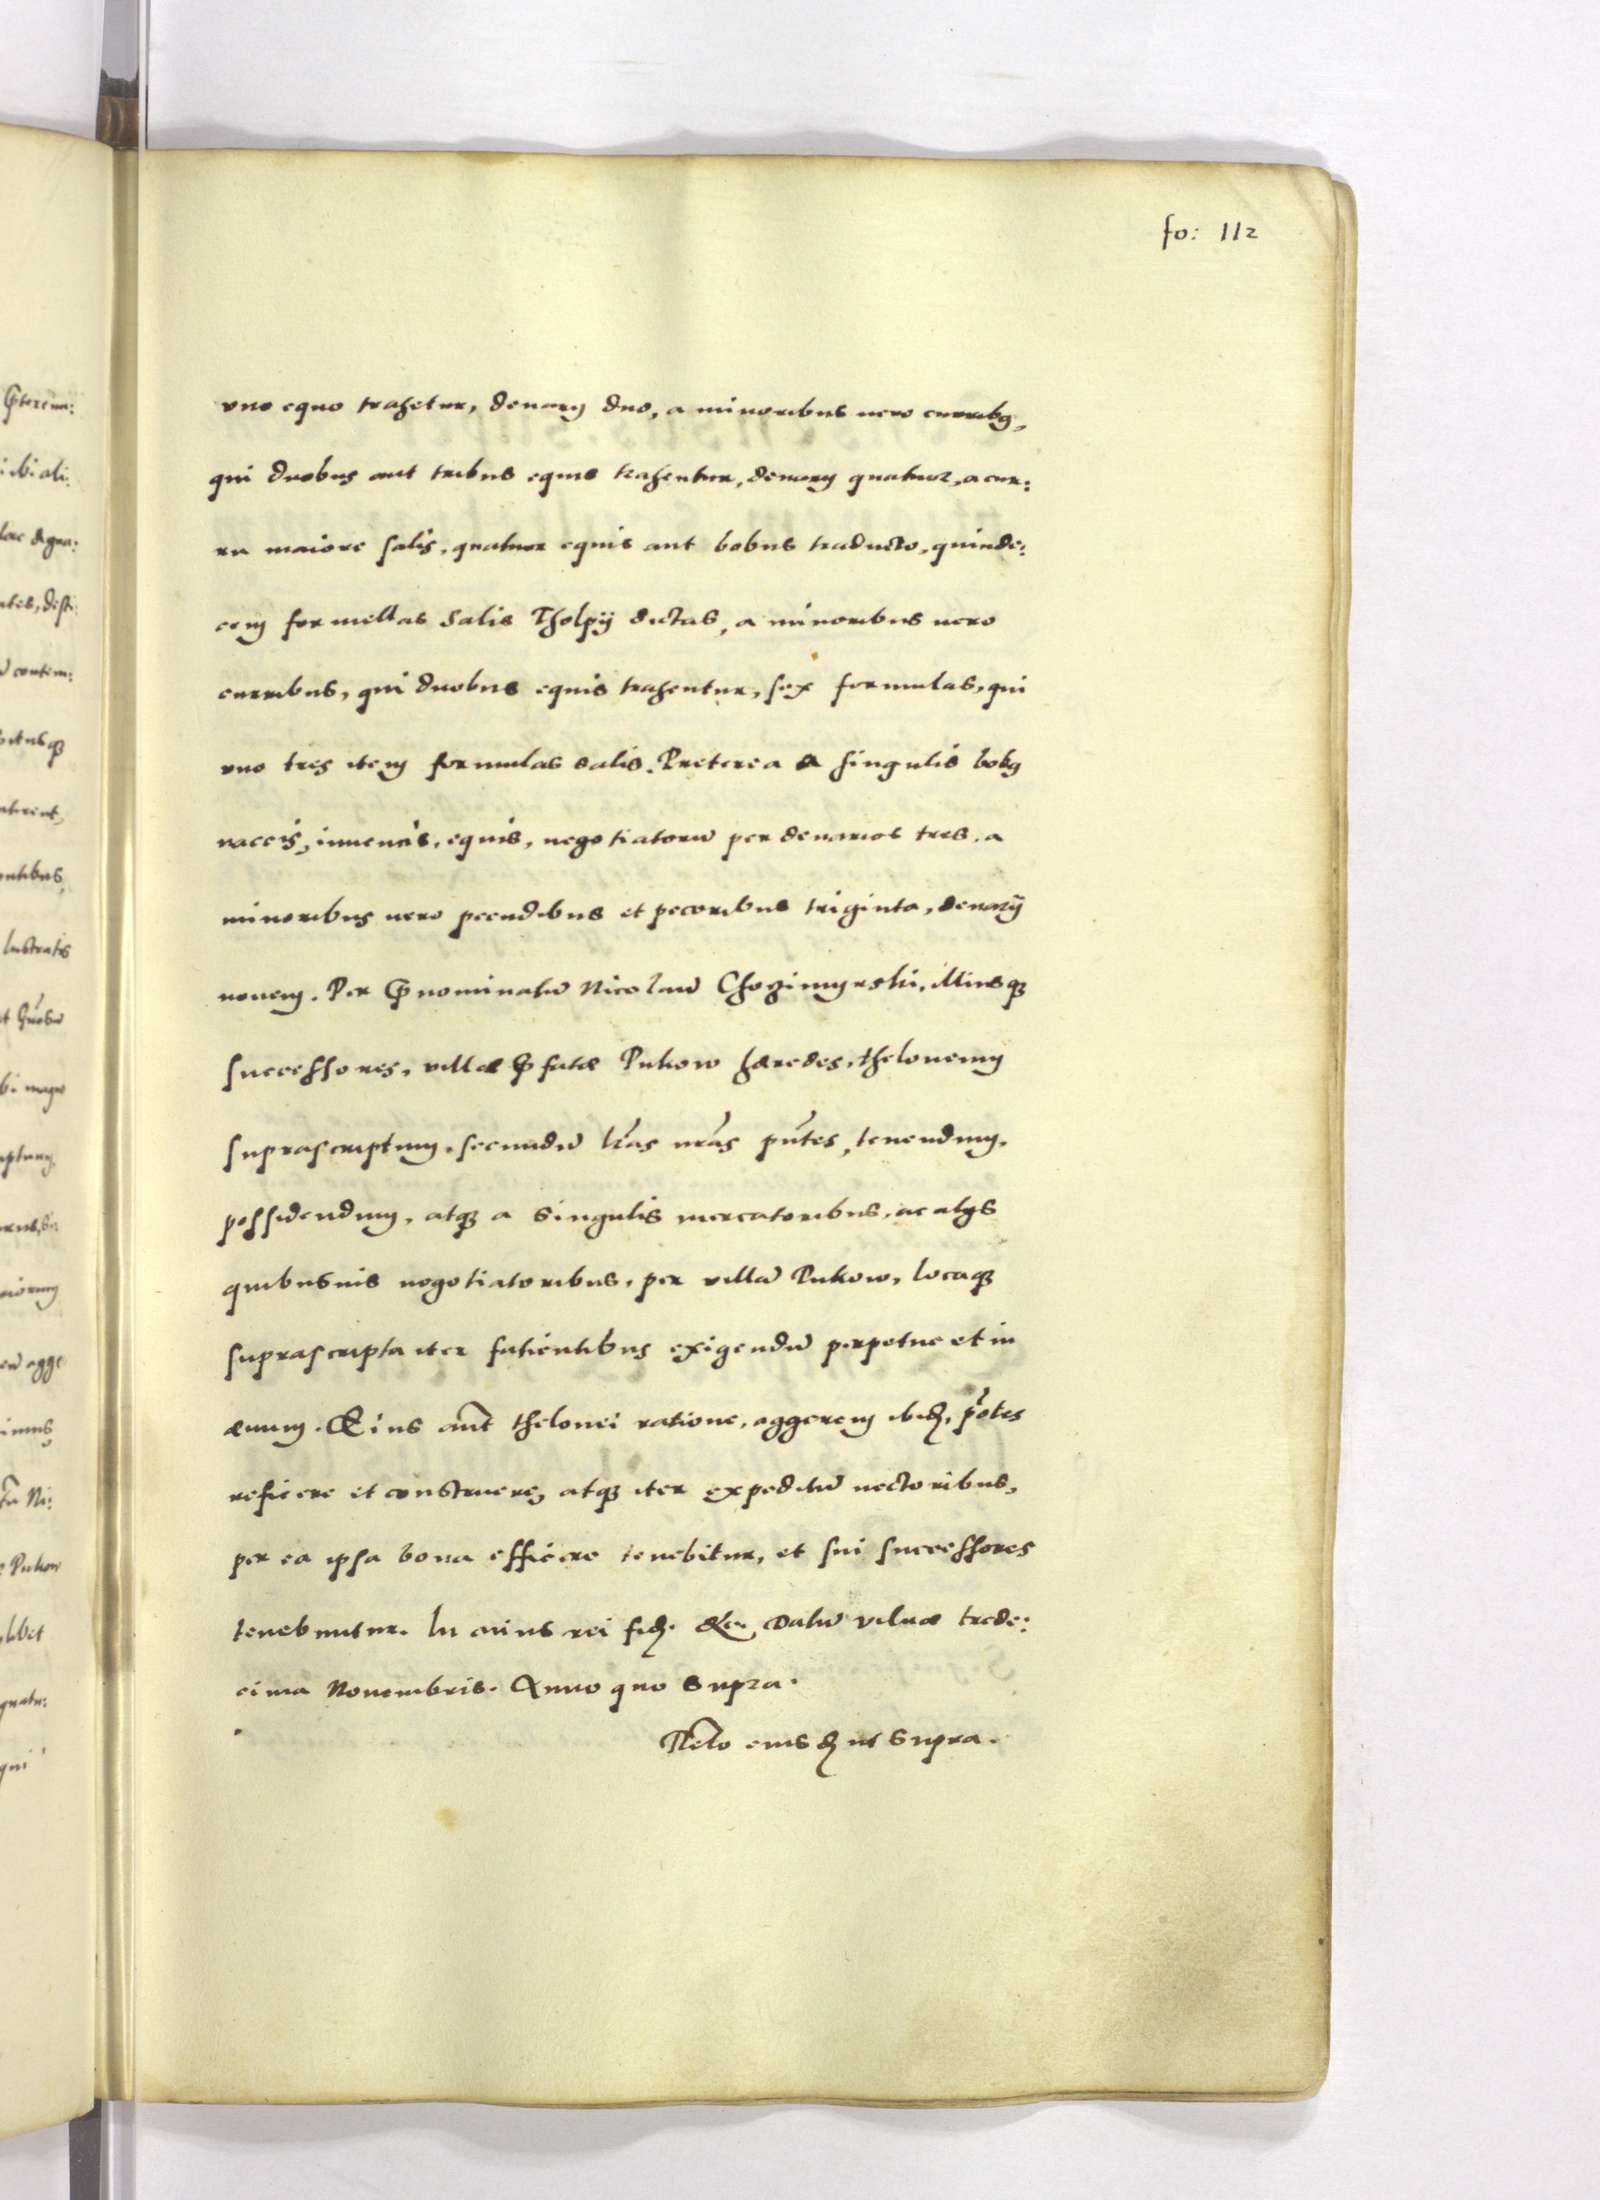 fo: 112
vno equo trahetur, denarij duo, a minoribus uero curribq,
qui duobus aut tribus equis trahentur, denarij quatuor, a cur:
ru maiore salis, quatuor equis aut bobus traducto, quinde:
cem formellas salis Tholpij dictas, a minoribus uero
curribus, qui duobus equis trahentur, sex formulas, qui
vno tres item formulas salis. Preterea a singulis bobq
vaccis, iuuencis, equis, negotiatorū per denarios tres. a
minoribus uero pecudibus et pecoribus triginta, denarij
nouem. Per p̄nominatū Nicolaū Chozimyrski, illiusq̨
successores, villæ p̄fatæ Pukow hæredes, theloneum
suprascriptum, secundū lr̄as nr̄as pn̄tes, tenendum,
possidendum, atq̨ a singulis mercatoribus, ac alijs
quibusuis negotiatoribus, per villā Pukow, locaq̨
suprascripta iter facientibus exigendū perpetue et in
æuum. Eius aūt thelonei ratione, aggerem ibid̨,
reficere et construere, atq̨ iter expeditū uectoribus,
per ea ipsa bona efficere tenebitur, et sui successores
tenebuntur. In cuius rei fid̨. &c. Datū Vilnæ trede:
cima Nouembris. Anno quo supra.
Rel̄o eiusd̨ ut supra.